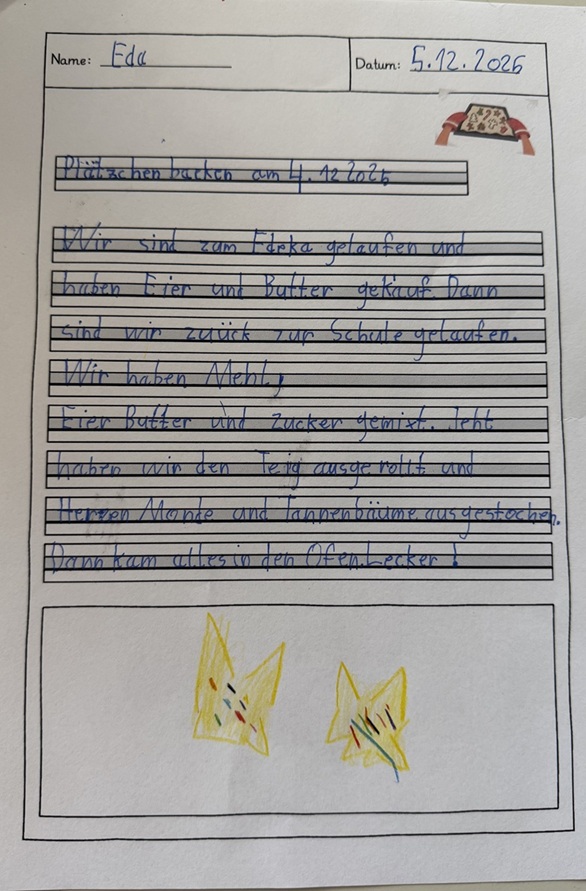 Name: Eda
Datum: 5.12.2025
Plätzchen backen am 4.12 2025
Wir sind zum Edeka gelaufen und
haben Eier und Butter gekauf. Dann
sind wir zuück zur Schule gelaufen.
Wir haben Mehl,
Eier Butter und Zucker gemixt. Jeht
haben wir den Teig ausgerollt und
Herzen Monde und Tannenbäume ausgestochen.
Dann kam alles in den Ofen. Lecker!